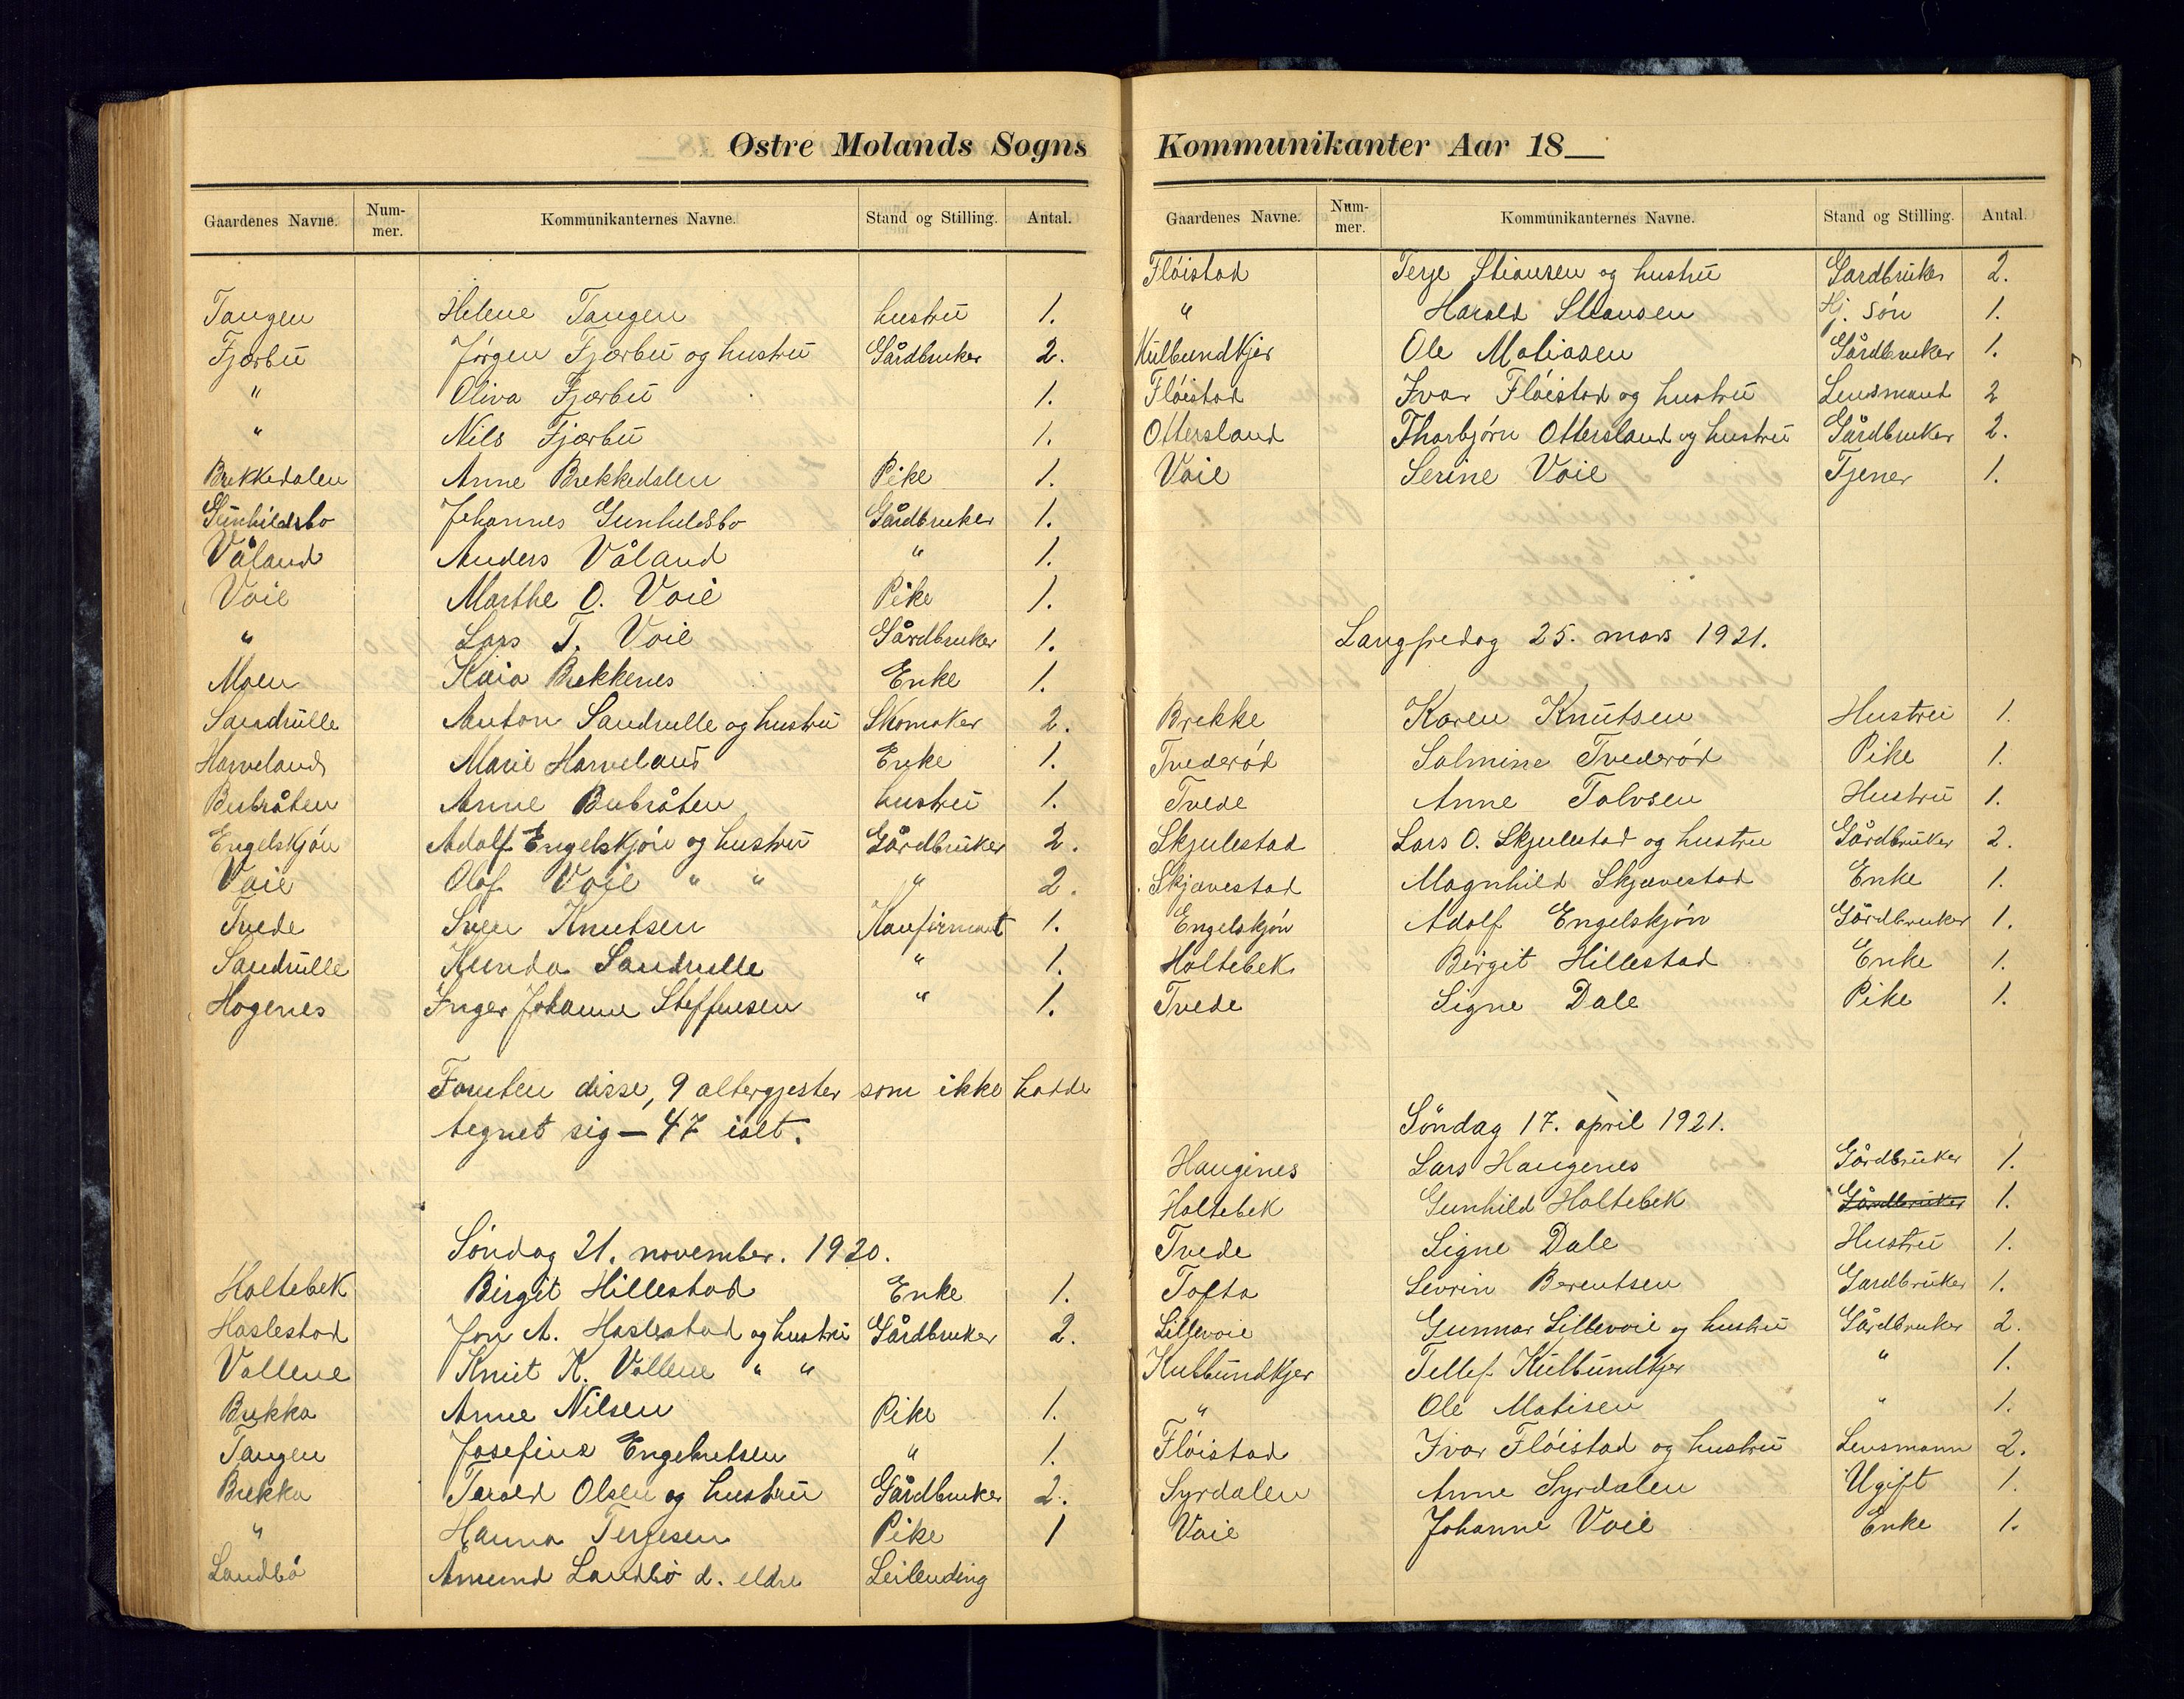 Østre Molands Sogns
Gaardenes Navne. Num-mer. Kommunikanternes Navne. Stand og Stilling. Antal.
Tangen Helene Tangen hustru 1.
Fjærbu Jørgen Fjærbu og hustru Gårdbruker 2.
" Oliva Fjærbu 1.
" Nils Fjærbu 1.
Brekkedalen Anne Brekkedalen Pike 1.
Gunhildsbo Johannes Gunhildsbo Gårdbruker 1.
Våland Anders Våland " 1.
Voie Marthe O. Voie Pike 1.
" Lars T. Voie Gårdbruker 1.
Moen Kaia Brekkenes Enke 1.
Sandrulle Anton Sandrulle og hustru Skomaker 2.
Harveland Marie Harveland Enke 1.
Bubråten Anne Bubråten hustru 1.
Engelskjøn Adolf Engelskjøn og hustru Gårdbruker 2.
Voie Olaf Voie " " " 2.
Tvede Sven Knutsen Konfirmant 1.
Sandrulle Kunda Sandrulle " 1.
Hogenes Inger Johanne Steffensen " 1.
Foruten disse, 9 altergjester som ikke hadde
tegnet sig — 47 ialt.
Søndag 21. november. 1920.
Holtebek Birgit Hillestad Enke 1.
Haslestad Jon A. Haslestad og hustru Gårdbruker 2.
Vollene Knut K. Vollene " "
Brekka Anne Nilsen Pike 1.
Tangen Josefine Engebretsen " 1.
Brekka Torald Olsen og hustru Gårdbruker 2.
" Hanna Terjesen Pike 1
Landbø Åmund Landbø d. eldre Leilending
Kommunikanter Aar 18
Gaardenes Navne. Num-mer. Kommunikanternes Navne. Stand og Stilling. Antal.
Fløistad Terje Stiansen og hustru Gardbruker 2.
" Harald Stiansen Hj. søn 1.
Kulbundkjer Ole Matiasen Gårdbruker 1.
Fløistad Ivar Fløistad og hustru Lensmand 2
Ottersland Thorbjørn Ottersland og hustru Gårdbruker 2.
Voie Serine Voie Tjener 1.
Langfredag 25. mars 1921.
Brekke Karen Knutsen Hustru 1.
Tvederød Salmine Tvederød Pike 1.
Tvede Anne Tolvsen Hustru 1.
Skjulestad Lars O. Skjulestad og hustru Gårdbruker 2.
Skjævestad Magnhild Skjævestad Enke 1.
Engelskjøn Adolf Engelskjøn Gårdbruker 1.
Holtebek Birgit Hillestad Enke 1.
Tvede Signe Dale Pike 1.
Söndag 17. april 1921.
Haugines Lars Haugenes Gårdbruker 1.
Holtebek Gunhild Holtebek Gårdbruker 1.
Tvede Signe Dale Hustru 1.
Tofta Sevrin Berentsen Gardbruker 1.
Lillevoie Gunnar Lillevoie og hustru Gårdbruker 2.
Kulbundkjer Tellef Kulbundkjer " 1.
" Ole Matisen " 1.
Fløistad Ivar Fløistad og hustru Lensmann 2.
Syrdalen Anne Syrdalen Ugift 1.
Voie Johanne Voie Enke 1.